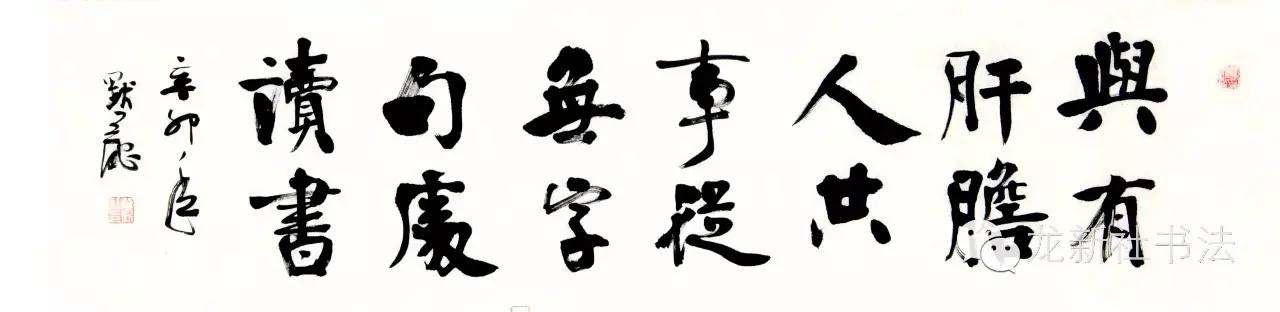 與有
肝膽
人共
事從
無字
句處
讀書
辛卯年
龙新社书法